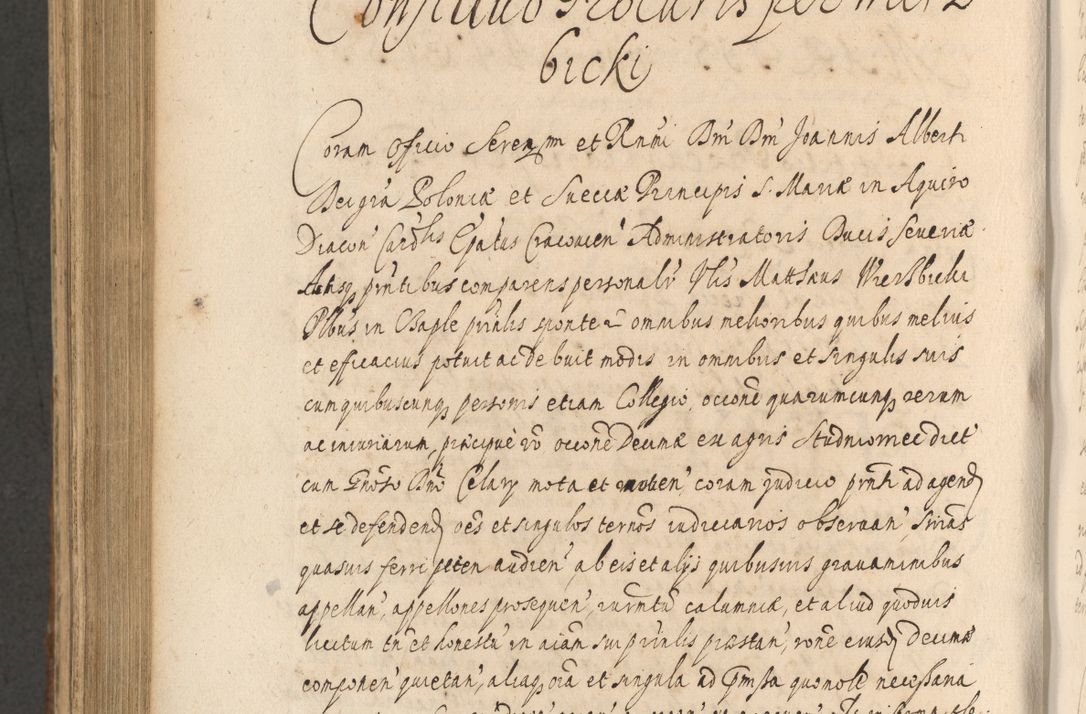 Constitutio Procuris per Wierz
bicki
Coram Officio Serenm et Rnmi Dni Dni Joannis Alberti
Dei gra Poloniæ et Sueciæ Principis S. Mariæ in Aquiro
Diacon' Cardlis Epatus Cracovien' Administratoris Ducis Severiæ.
Actisq pntibus comparens personalr Ilis Matthæus Wierzbicki
Plbus in prnlis sponte omnibus melioribus quibus melius
et eficacius potuit ac debuit modis in omnibus et singulis suis
cum quibuscunq personis etiam Collegio, occone quarumcunq rerum
ac iniuriarum, præcipue vo occone Decimæ ex agris Studniomec dict'
cum Gnoso Dno Celary mota et moven', coram judicio pnti ad agend
et se defendend oes et singulos ternos iudiciarios observan', snias
quasvis ferri peten audien', ab eis et alijs quibusvis gravaminibus
appellan', appellones prosequen', iurmtu calumniæ, et aliud quodvis
licitum tn et honestu in aiam sui prnlis præstan', rone eiusd decimæ
componen' quietan', aliaq oia et singula ad præmissa quomolt necessaria